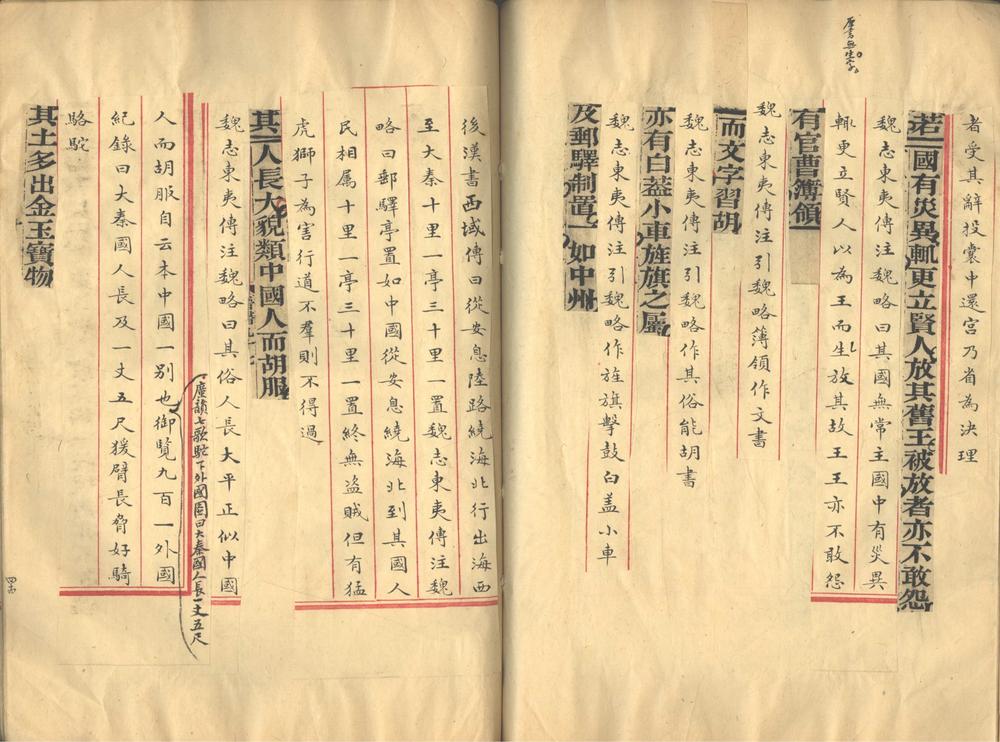 者受其辭投囊中還宮乃省為決理
若國有災異輒更立賢人放其舊王被放者亦不敢怨
魏志東夷傳注魏略曰其國無常主國中有災異
輒更立賢人以為王而生放其故王王亦不敢怨
有官曹簿領
魏志東夷傳注引魏略簿領作文書
而文字習胡
魏志東夷傳注引魏略作其俗能胡書
亦有白蓋小車旌旗之屬
魏志東夷傳注引魏略作旌旗擊鼓白蓋小車
及郵驛制置一如中州
後漢書西域傳曰從安息陸路繞海北行出海西
至大秦十里一亭三十里一置魏志東夷傳注魏
略曰郵驛亭置如中國從安息繞海北到其國人
民相属十里一亭三十里一置終無盜賊但有猛
虎獅子為害行道不羣則不得過
其人長大貌類中國人而胡服
魏志東夷傳注魏略曰其俗人長大平正似中國
人而胡服自云本中國一別也御覽九百一外國
廣韻七歌駝下外國圖曰大秦國人長一丈五尺
紀錄曰大秦國人長及一丈五尺猨臂長脅好騎
駱駝
其土多出金玉寶物